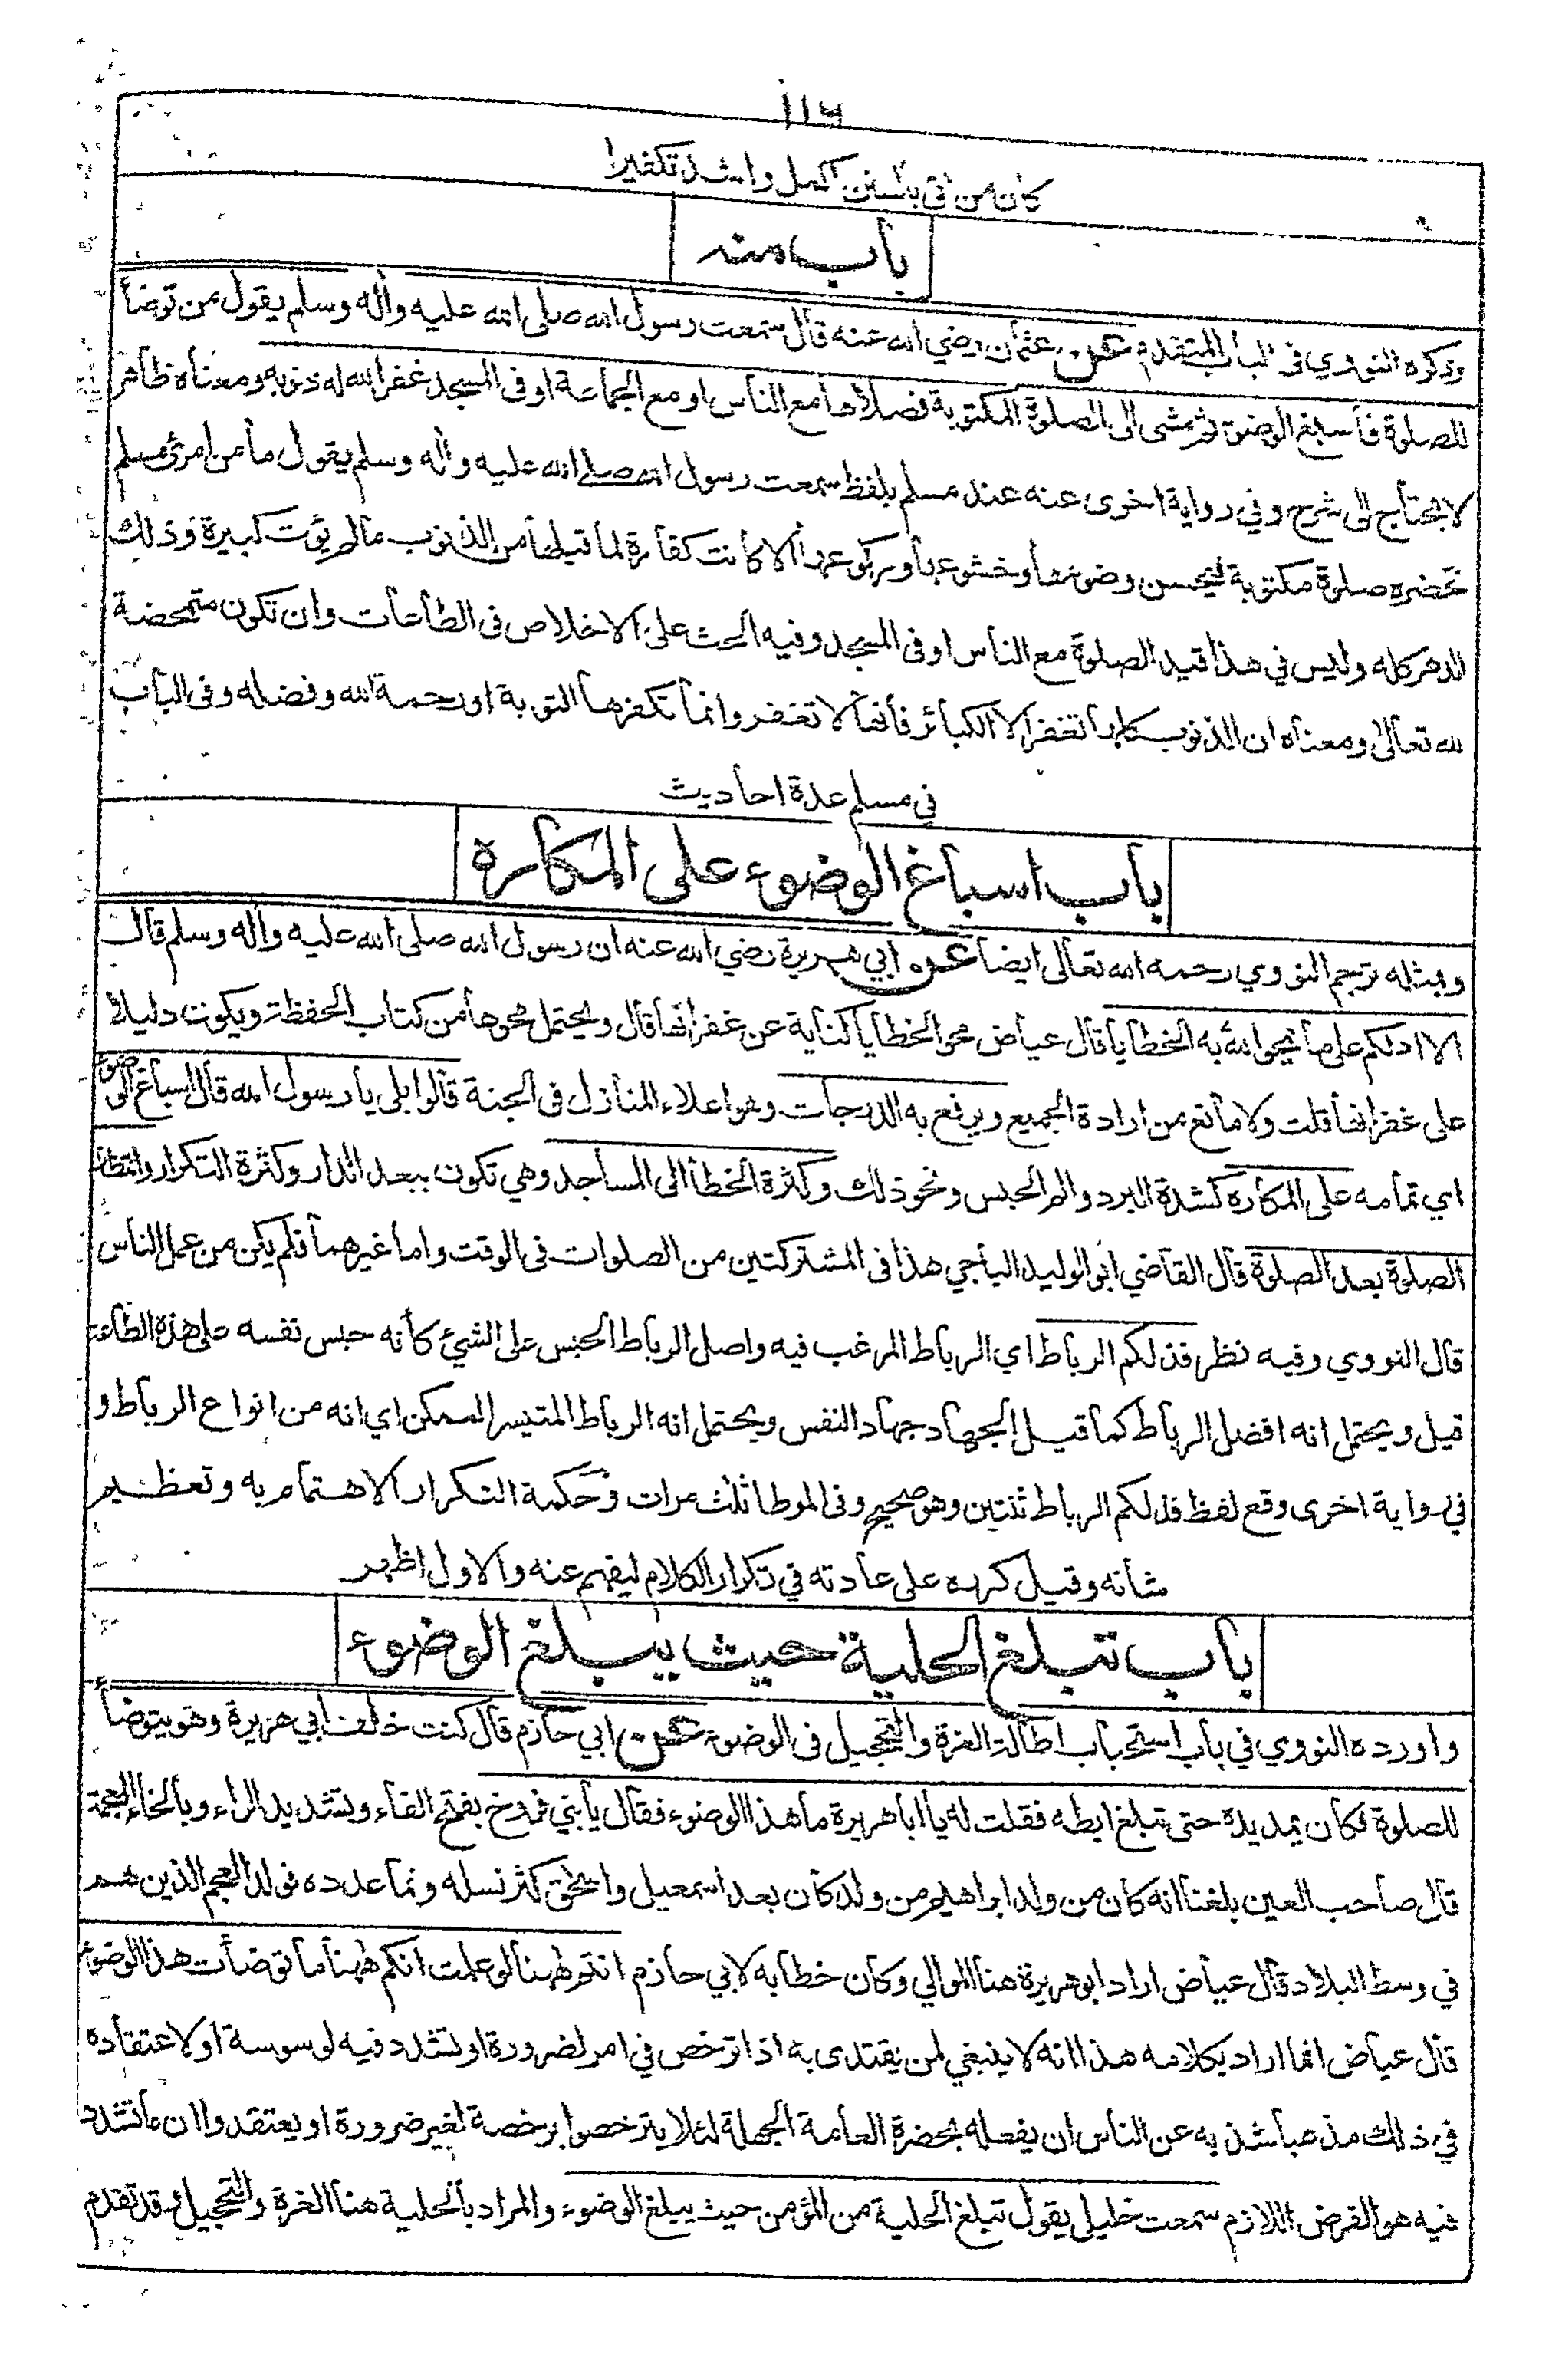 ١١٦
كان من اتى باثنين اكمل واشد تكفيرا
باب منه
وذكره النووي فى الباب المتقدم عن عثمان رضي الله عنه قال سمعت رسول الله صلى الله عليه واٰله وسلم يقول من توضأ
للصلوة فأسبغ الوضوء ثم مشى الى الصلوة المكتوبة فصلاها مع الناس او مع الجماعة او فى المسجد غفر الله له ذنوبه ومعناه ظاهر
لا يحتاج الى شرح وفي رواية اخرى عنه عند مسلم بلفظ سمعت رسول الله صلى الله عليه واٰله وسلم يقول ما من امرئ مسلم
تحضره صلوة مكتوبة فيحسن وضوءها وخشوعها وركوعها الا كانت كفارة لما قبلها من الذنوب ما لم يؤت كبيرة وذلك
الدهر كله وليس في هذا قيد الصلوة مع الناس او فى المسجد وفيه الحث على الاخلاص فى الطاعات وان تكون متمحضة
لله تعالى ومعناه ان الذنوب كلها تغفر الا الكبائر فانها لا تغفر وانما تكفرها التوبة او رحمة الله وفضله وفى الباب
في مسلم عدة احاديث
باب اسباغ الوضوء على المكاره
وبمثله ترجم النووي رحمه الله تعالى ايضا عن ابي هريرة رضي الله عنه ان رسول الله صلى الله عليه واٰله وسلم قال
الا ادلكم على ما يمحوا الله به الخطايا قال عياض محو الخطايا كناية عن غفرانها قال ويحتمل محوها من كتاب الحفظة ويكون دليلا
على غفرانها قلت ولا مانع من ارادة الجميع ويرفع به الدرجات وهو اعلاء المنازل فى الجنة قالوا بلى يا رسول الله قال اسباغ الوضوء
اي تمامه على المكاره كشدة البرد والم الجبس ونحو ذلك وكثرة الخطا الى المساجد وهي تكون ببعد الدار وكثرة التكرار وانتظار
الصلوة بعد الصلوة قال القاضي ابو الوليد الباجي هذا فى المشتركتين من الصلوات فى الوقت واما غيرهما فلم يكن من عمل الناس
قال النووي وفيه نظر فذلكم الرباط اي الرباط المرغب فيه واصل الرباط الحبس على الشيئ كأنه حبس نفسه على هذه الطاعة
قيل ويحتمل انه افضل الرباط كما قيل الجهاد جهاد النفس ويحتمل انه الرباط المتيسر الممكن اي انه من انواع الرباط و
في رواية اخرى وقع لفظ فذلكم الرباط ثنتين وهو صحيح وفى الموطا ثلث مرات وحكمة التكرار الاهتمام به وتعظيم
شانه وقيل كرره على عادته في تكرار الكلام ليفهم عنه والاول اظهر
باب تبلغ الحلية حيث يبلغ الوضوء
واورده النووي في باب استحباب اطالة الغرة والتحجيل فى الوضوء عن ابي حازم قال كنت خلف ابي هريرة وهو يتوضأ
للصلوة فكان يمد يده حتى تبلغ ابطه فقلت له يا ابا هريرة ما هذا الوضوء فقال يا بني فروخ بفتح الفاء وتشديد الراء وبالخاء المعجمة
قال صاحب العين بلغنا انه كان من ولد ابراهيم من ولد كان بعد اسمعيل واسحٰق كثر نسله ونما عدده فولد العجم الذين هم
في وسط البلاد قال عياض اراد ابو هريرة هنا الموالي وكان خطابه لابي حازم انتم ههنا لو علمت انكم ههنا ما توضأت هذا الوضوء
قال عياض انما اراد بكلامه هذا انه لا ينبغي لمن يقتدى به اذا ترخص في امر لضرورة او تشدد فيه لوسوسة او لاعتقاده
في ذلك مذهبا شذ به عن الناس ان يفعله بحضرة العامة الجهلة لئلا يترخصوا برخصة لغير ضرورة او يعتقدوا ان ما تشدد
فيه هو الفرض اللازم سمعت خليلي يقول تبلغ الحلية من المؤمن حيث يبلغ الوضوء والمراد بالحلية هنا الغرة والتحجيل وقد تقدم